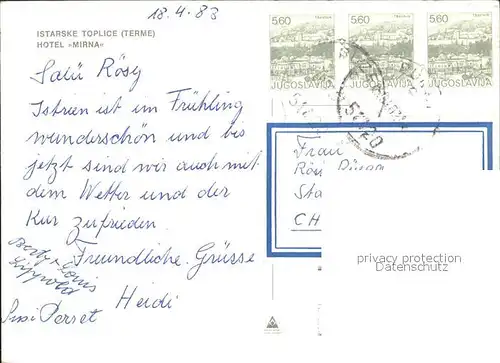 18.4.83
ISTARSKE TOPLICE (TERME)
HOTEL »MIRNA«
Salü Rösy
Istrien ist im Frühling
wunderschön und bis
jetzt sind wir auch mit
dem Wetter und der
Kur zufrieden.
Freundliche Grüsse
Heidi
Susi Perset
560
JUGOSLAVIJA
560
JUGOSLAVIJA
560
JUGOSLAVIJA
Frau
CH
privacy protection
Datenschutz